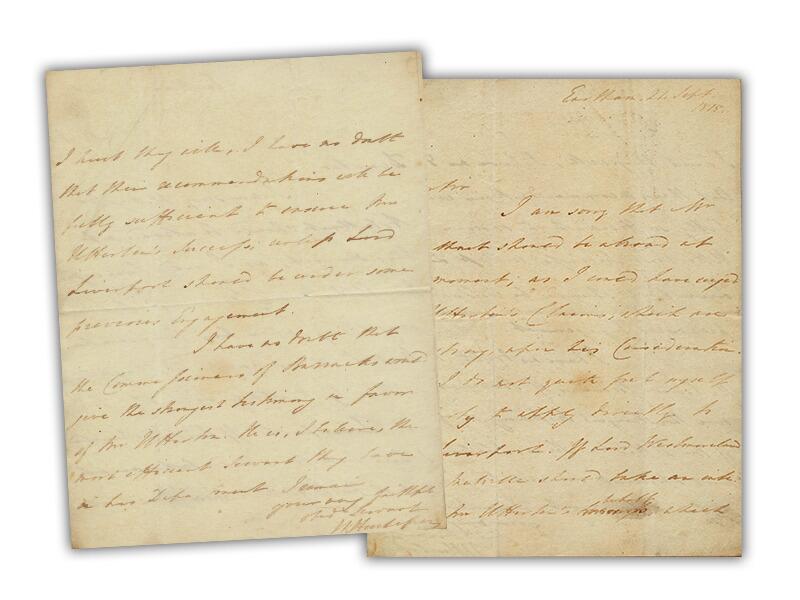 Sept.
1815.
Sir
I am sorry that Mr
should be abroad at
moment, as I could have urged
Claims, which are
upon his Consideration.
I do not quite feel myself
to apply directly to
Liverpool. If Lord Westmoreland
should take an inte
Mr behalf which
I trust they will, I have no doubt
that their recommendations will be
fully sufficient to ensure Mr
success, unless Lord
Liverpool should be under some
previous Engagement.
I have no doubt that
the Commissioners of Barracks would
give the strongest testimony in favor
of Mr He is, I believe, the
most efficient Servant they have
in his Department. I remain
your very faithful
obed servant